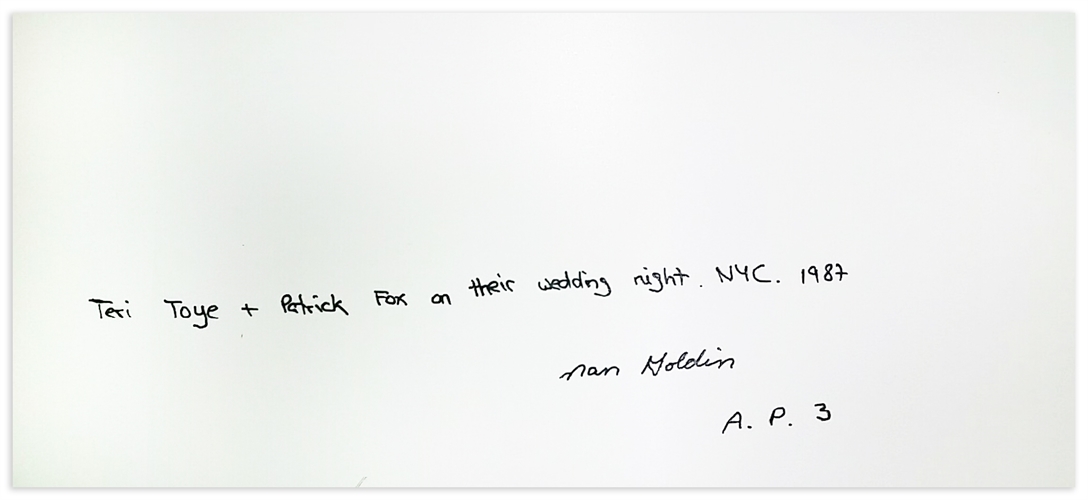 Teri Toye + Patrick Fox on their wedding night. NYC. 1987
nan Goldin
A. P. 3